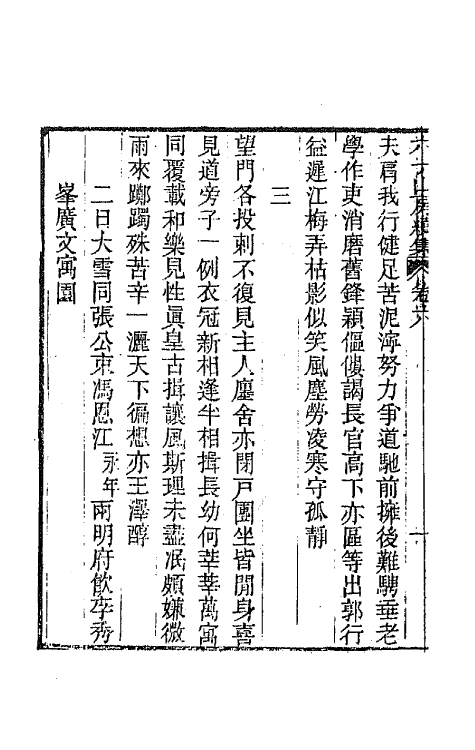 夫肩我行健足苦泥濘努力爭道馳前擁後難騁垂老
學作吏消磨舊鋒穎傴僂謁長官高下亦區等出郭行
益遲江梅弄枯影似笑風塵勞凌寒守孤靜
三
望門各投刺不復見主人廳舍亦閉戶團坐皆閒身喜
見道旁子一例衣冠新相逢半相揖長幼何莘莘萬寓
同覆載和樂見性眞皇古揖讓風斯理未盡泯頗嫌微
雨來躑躅殊苦辛一灑天下徧想亦王澤醇
二日大雪同張公束馮恩江永年兩明府飮李秀
峯廣文寓園